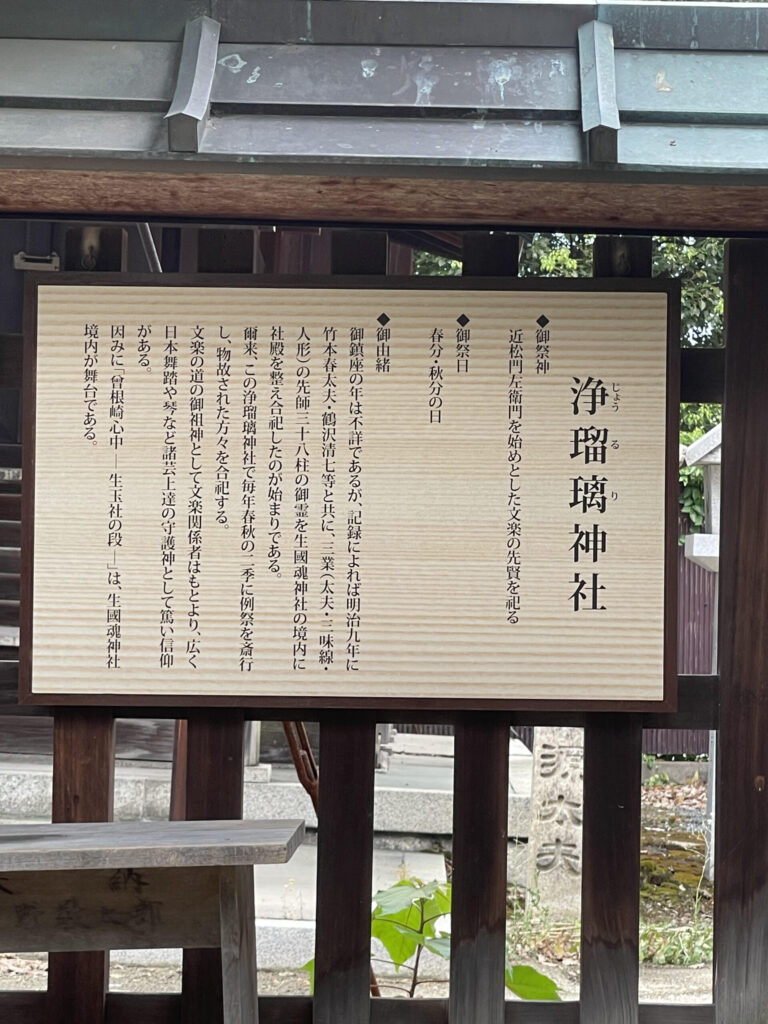 浄瑠璃神社
じょうるり
◆御祭神
近松門左衛門を始めとした文楽の先賢を祀る
◆御祭日
春分・秋分の日
◆御由緒
御鎮座の年は不詳であるが、記録によれば明治九年に
竹本春太夫・鶴沢清七等と共に、三業(太夫・三味線・
人形)の先師三十八柱の御霊を生國魂神社の境内に
社殿を整え合祀したのが始まりである。
爾来、この浄瑠璃神社で毎年春秋の二季に例祭を斎行
し、物故された方々を合祀する。
文楽の道の御祖神として文楽関係者はもとより、広く
日本舞踏や琴など諸芸上達の守護神として篤い信仰
がある。
因みに「曾根崎心中―生玉社の段―」は、生國魂神社
境内が舞台である。
源太夫